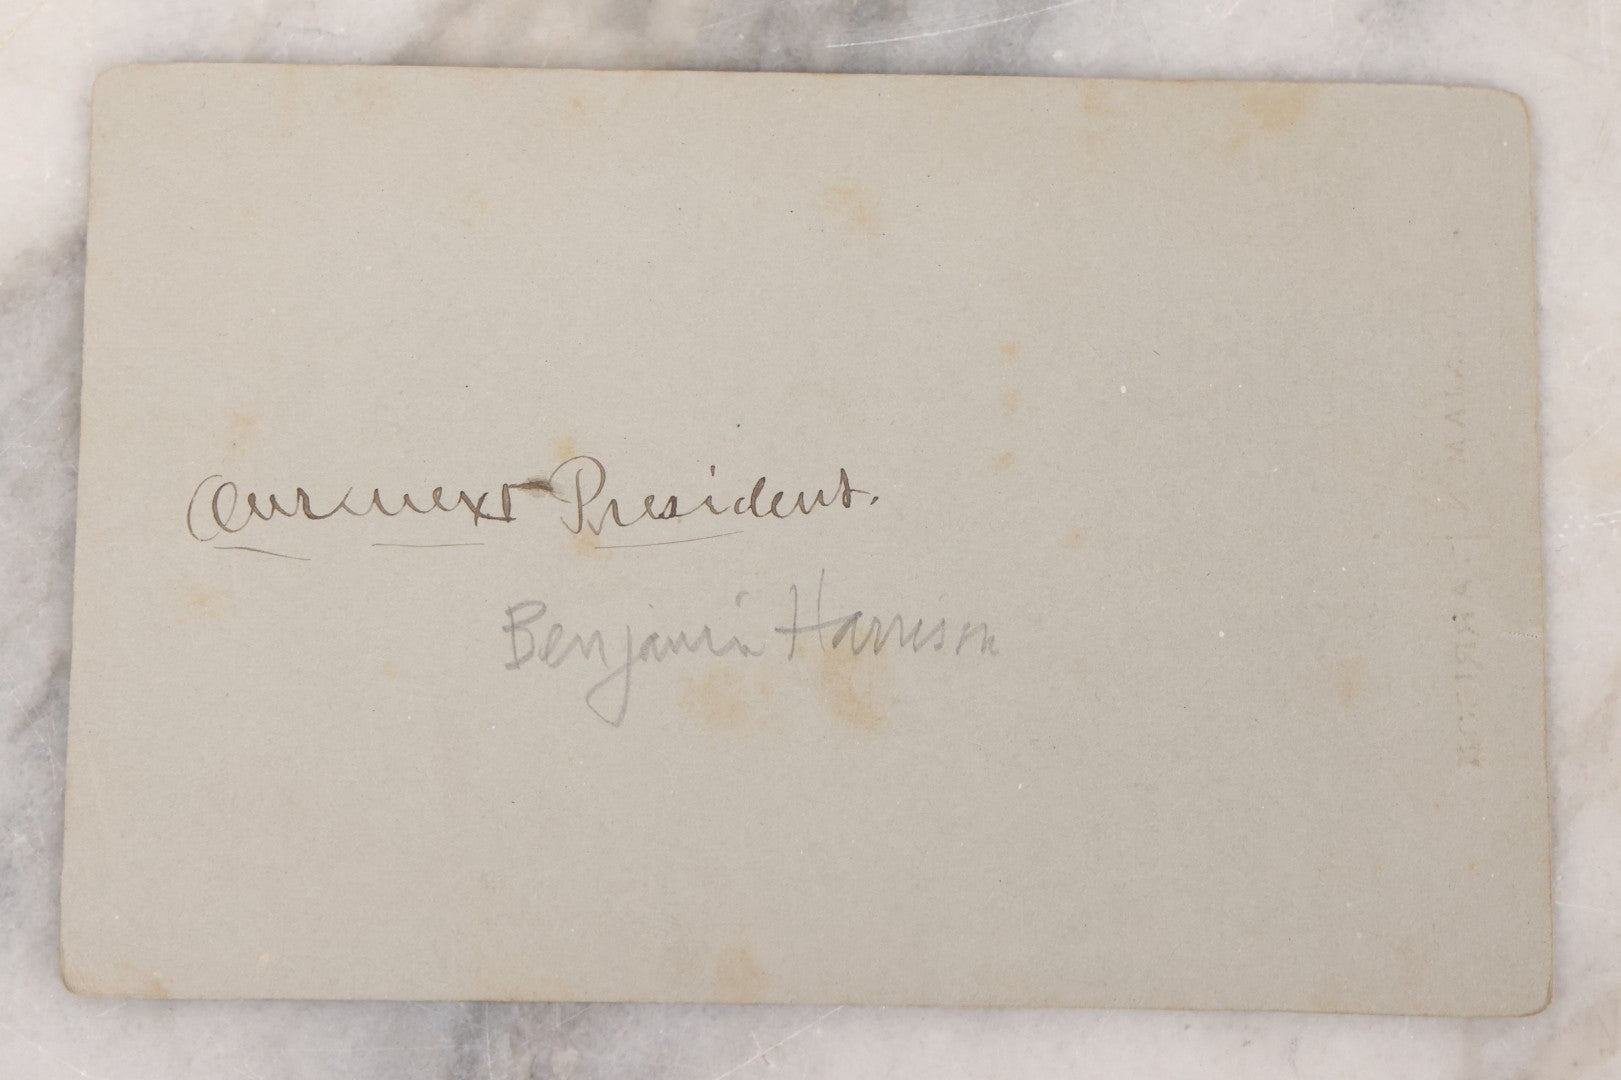 Our next President.
Benjamin Harrison